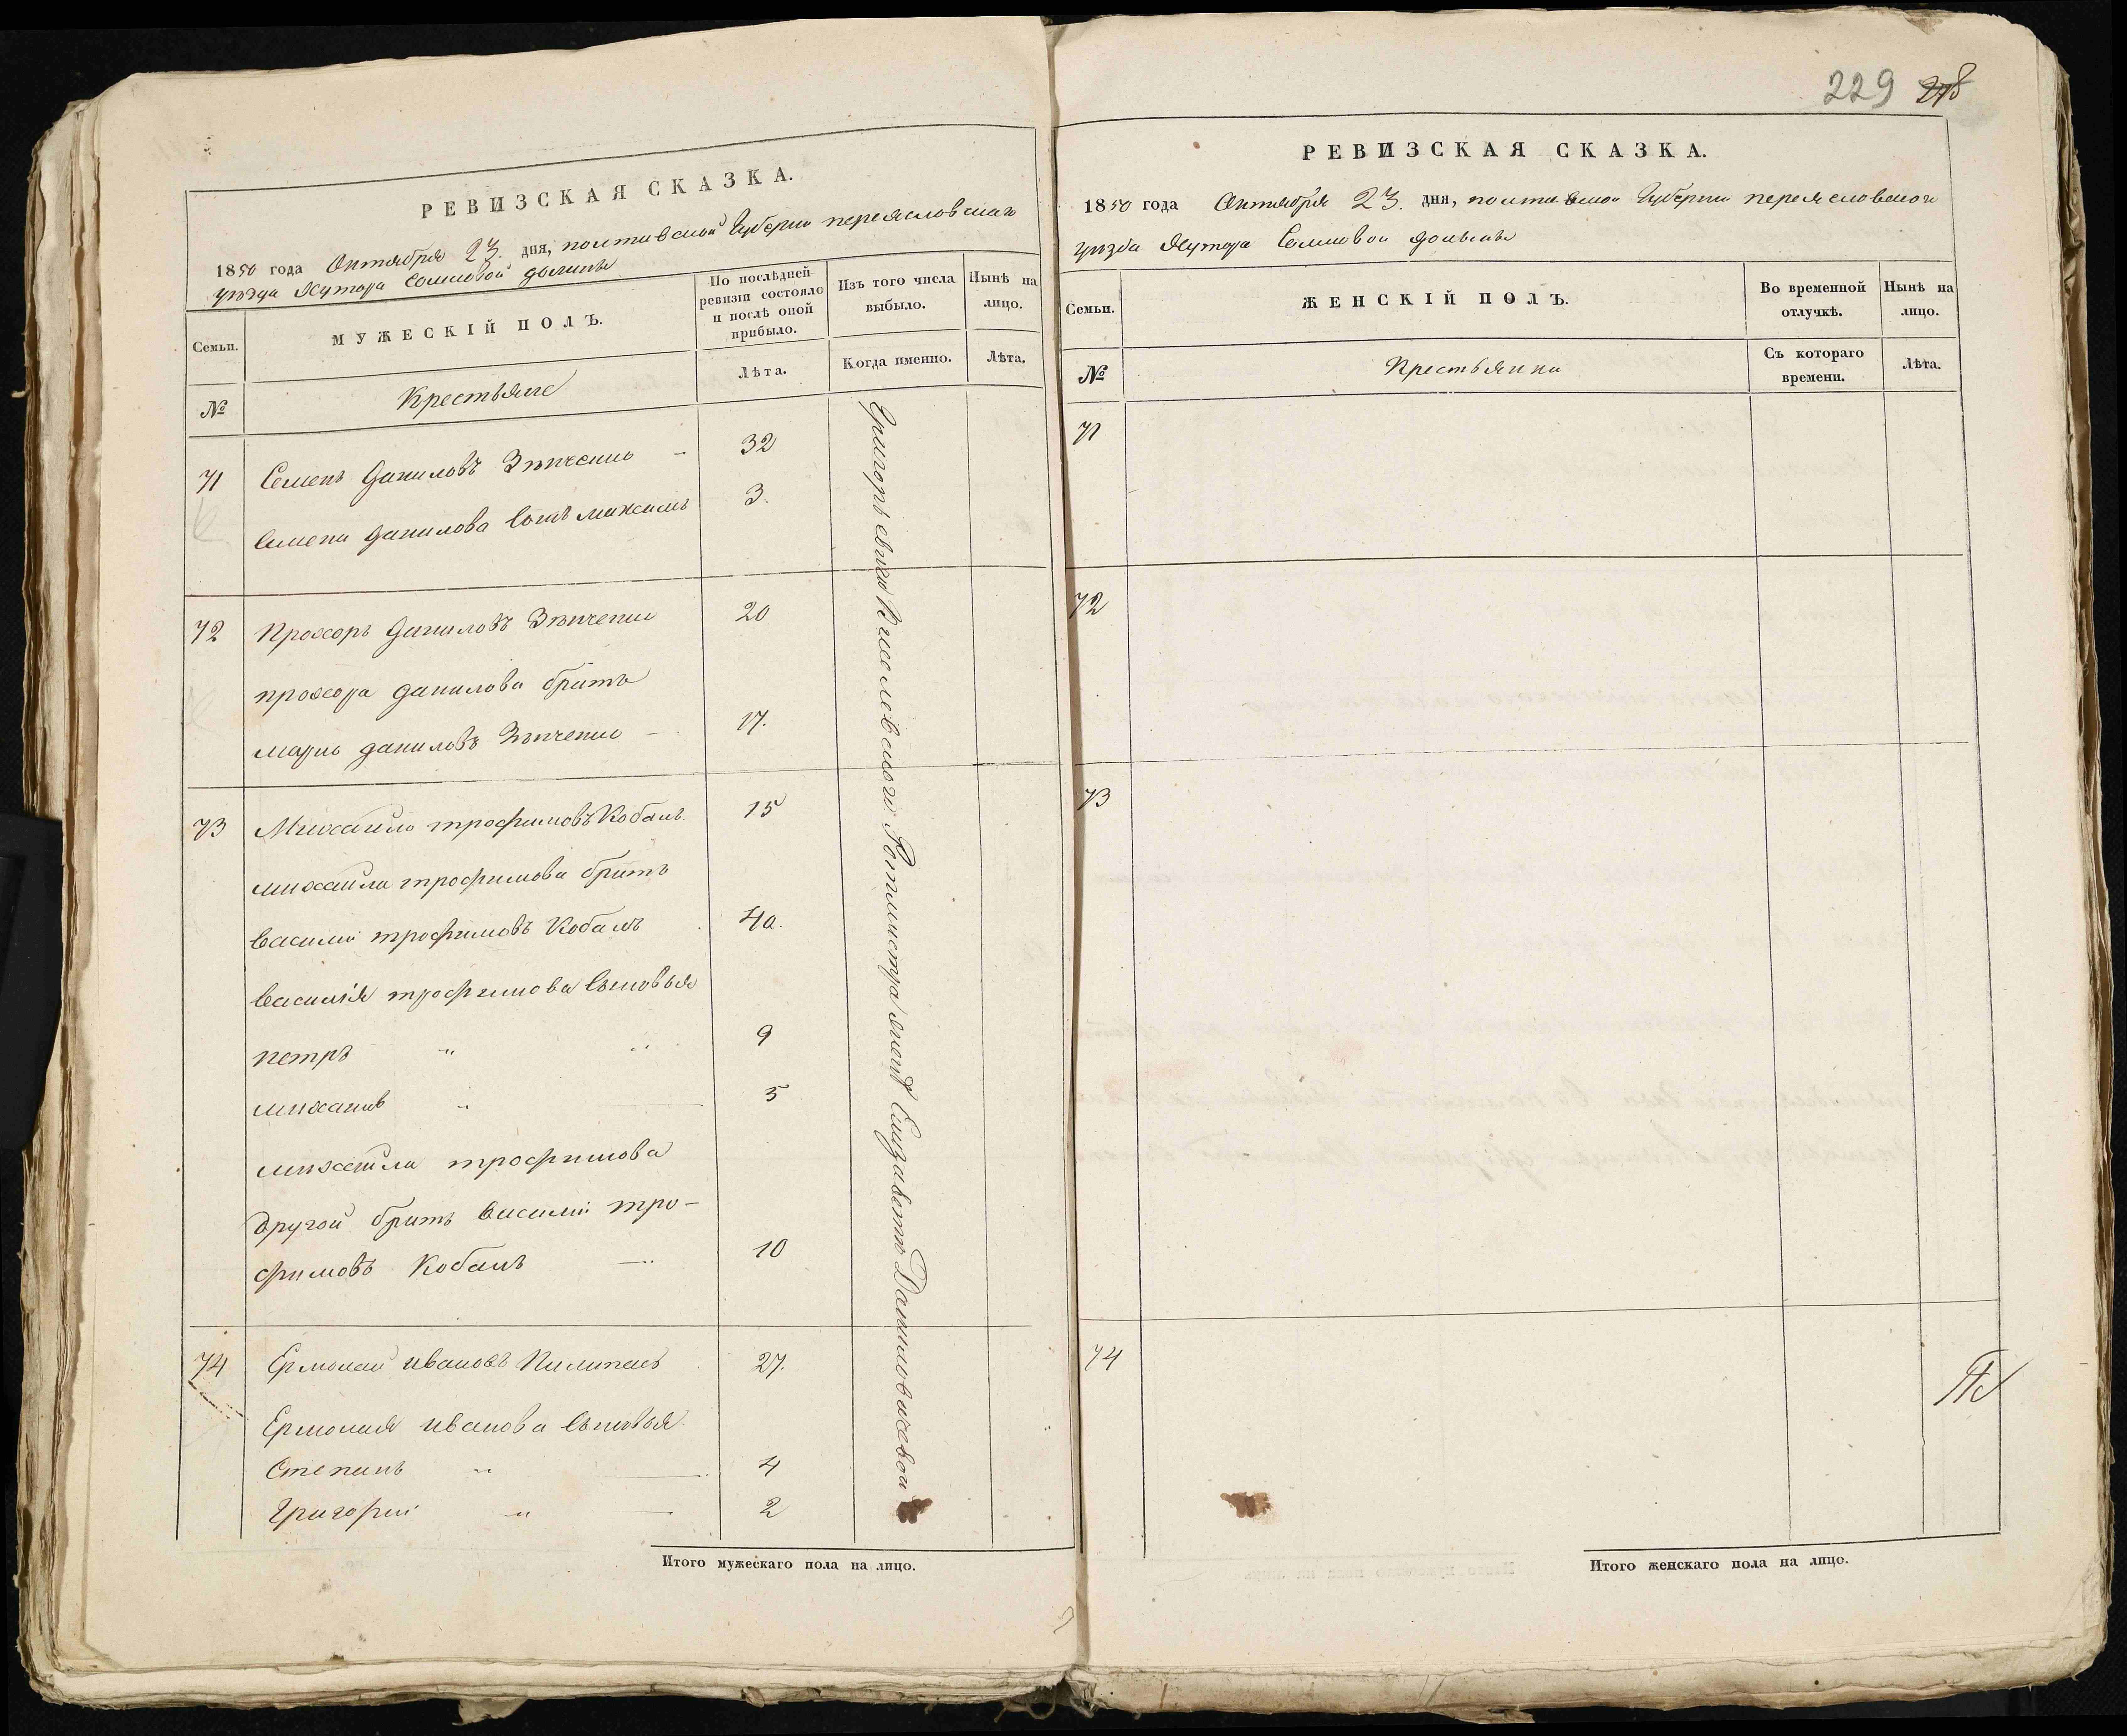 229 278
РЕВИЗСКАЯ СКАЗКА.
1850 года Октября 23. дня, полтавской Губернии переясловского
уезда Хутора Сомковой долины
Семьи.
МУЖЕСКІЙ ПОЛЪ.
По послѣдней ревизіи состояло и послѣ оной прибыло.
Изъ того числа выбыло.
Нынѣ на лицо.
№
Крестьяне
Лѣта.
Когда именно.
Лѣта.
71 Семенъ Даниловъ Зѣнченко - 32
Семена Данилова Сынъ максимъ 3.
72 Прохоръ Даниловъ Зѣнченко 20
прохора данилова братъ
марко даниловъ Зѣнченко - 17.
73 Михайло трофимовъ Кобанъ. 15
михайла трофимова братъ
василий трофимовъ Кобанъ 40.
василія трофимова Сыновья
петръ " " 9
михаилъ " 5
михайла трофимова
другой братъ василий тро-
фимовъ Кобанъ 10
74 Ермолай ивановъ 27.
Ермолая иванова Сыновья
Степанъ " 4
Григорій " 2
Ротмистра женѣ Елизаветѣ Даниловичевой
Итого мужескаго пола на лицо.
РЕВИЗСКАЯ СКАЗКА.
1850 года Октября 23. дня, полтавской Губернии переясловского
уезда Хутора Сомковой долины
Семьи.
ЖЕНСКІЙ ПОЛЪ.
Во временной отлучкѣ.
Нынѣ на лицо.
№
Крестьянки
Съ котораго времени.
Лѣта.
71
72
73
74
Итого женскаго пола на лицо.